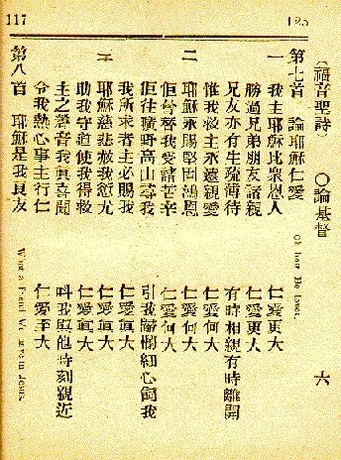 117
125
(福音聖詩) ○論基督 六
第七首 論耶穌仁愛 Oh how He loves.
一 我主耶穌比衆恩人 仁愛更大
勝過兄弟朋友諸親 仁愛更大
兄友亦有生疏薄待 有時相親有時離開
惟我救主永遠親愛 仁愛何大
二 耶穌永賜堅固鴻恩 仁愛何大
佢曾替我受諸苦辛 仁愛何大
佢往曠野高山尋我 引我歸欄細心飼我
我所求者主必賜我 仁愛眞大
三 耶穌慈悲赦我愆尤 仁愛眞大
助我守道使我得救 仁愛眞大
主之聲音我眞喜聞 叫我與他時刻親近
令我熱心事主行仁 仁愛至大
第八首 耶穌是我良友 What a Friend We have in Jesus